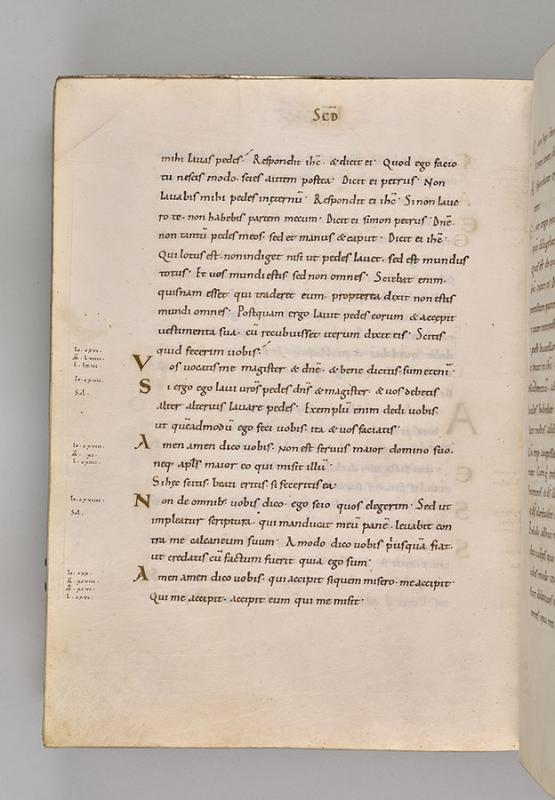 SCD̄
mihi lavas pedes. Respondit ihc̄. & dicit ei. Quod ego facio
tu nescis modo. scies autem postea. Dicit ei petrus. Non
lavabis mihi pedes inęternū. Respondit ei ihc̄. Si non lave
ro te. non habebis partem mecum. Dicit ei simon petrus. Dn̄e.
non tantū pedes meos. sed et manus & caput. Dicit ei ihc̄.
Qui lotus est. non indiget nisi ut pedes lavet. sed est mundus
totus. Et vos mundi estis sed non omnes. Sciebat enim.
quisnam esset qui traderet eum. propterea dixit non estis
mundi omnes. Postquam ergo lavit pedes eorum & accepit
vestimenta sua. cū recubuisset iterum dixit eis. Scitis
quid fecerim vobis.
Vos vocatis me magister & dn̄e. & bene dicitis. sum etenī.
Si ergo ego lavi vr̄os pedes dn̄s & magister. & vos debetis
alter alterius lavare pedes. Exemplū enim dedi vobis.
ut quēadmodū ego feci vobis. ita & vos faciatis.
Amen amen dico vobis. Non est servus maior domino suo.
neq; apl̄s maior eo qui misit illū.
Si hęc scitis. beati eritis si feceritis ea.
Non de omnib; vobis dico. ego scio quos elegerim. Sed ut
impleatur scriptura. qui manducat meū panē. levabit con
tra me calcaneum suum. A modo dico vobis p̄usquā fiat.
ut credatis cū factum fuerit quia ego sum.
Amen amen dico vobis. qui accipit siquem misero. me accipit.
Qui me accipit. accipit eum qui me misit.
Io. cxvi.
Io. cxvii.
Sol.
Io. cxviii.
Io. cxviiii.
Sol.
Io. cxx.